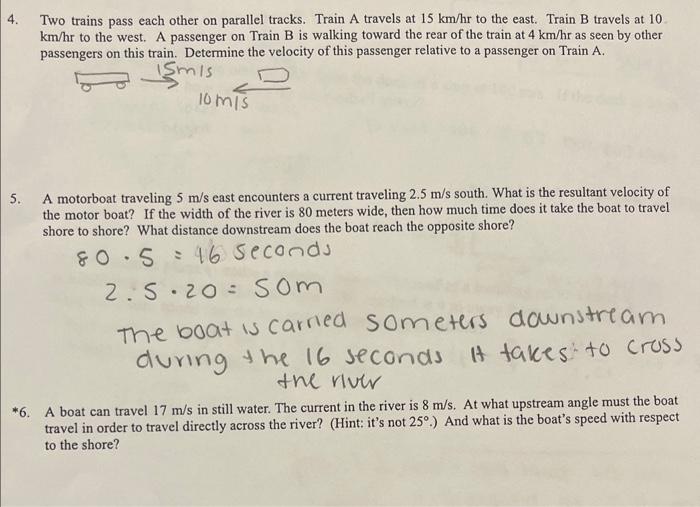 4. Two trains pass each other on parallel tracks. Train A travels at 15 km/hr to the east. Train B travels at 10
km/hr to the west. A passenger on Train B is walking toward the rear of the train at 4 km/hr as seen by other
passengers on this train. Determine the velocity of this passenger relative to a passenger on Train A.
15m/s
10m/s
5. A motorboat traveling 5 m/s east encounters a current traveling 2.5 m/s south. What is the resultant velocity of
the motor boat? If the width of the river is 80 meters wide, then how much time does it take the boat to travel
shore to shore? What distance downstream does the boat reach the opposite shore?
80 · 5 = 16 seconds
2.5 · 20 = 50m
The boat is carried 50meters downstream
during the 16 seconds it takes to cross
the river
*6. A boat can travel 17 m/s in still water. The current in the river is 8 m/s. At what upstream angle must the boat
travel in order to travel directly across the river? (Hint: it's not 25°.) And what is the boat's speed with respect
to the shore?